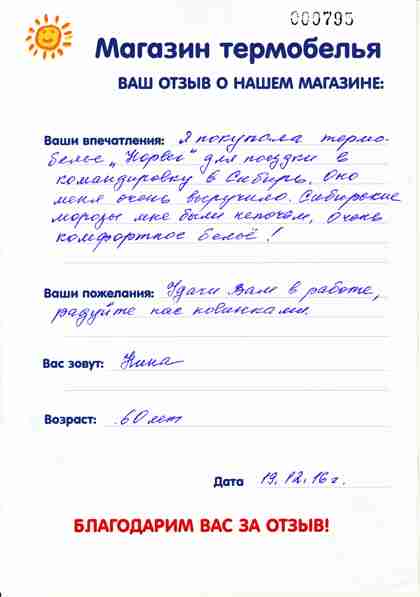 000795
Магазин термобелья
ВАШ ОТЗЫВ О НАШЕМ МАГАЗИНЕ:
Ваши впечатления: Я покупала термо-
белье „Норвег" для поездки в
командировку в Сибирь. Оно
меня очень выручило. Сибирские
морозы мне были нипочем, Очень
комфортное бельё!
Ваши пожелания: Удачи Вам в работе,
радуйте нас новинками.
Вас зовут: Нина
Возраст: 60 лет
Дата 19.12.16 г.
БЛАГОДАРИМ ВАС ЗА ОТЗЫВ!